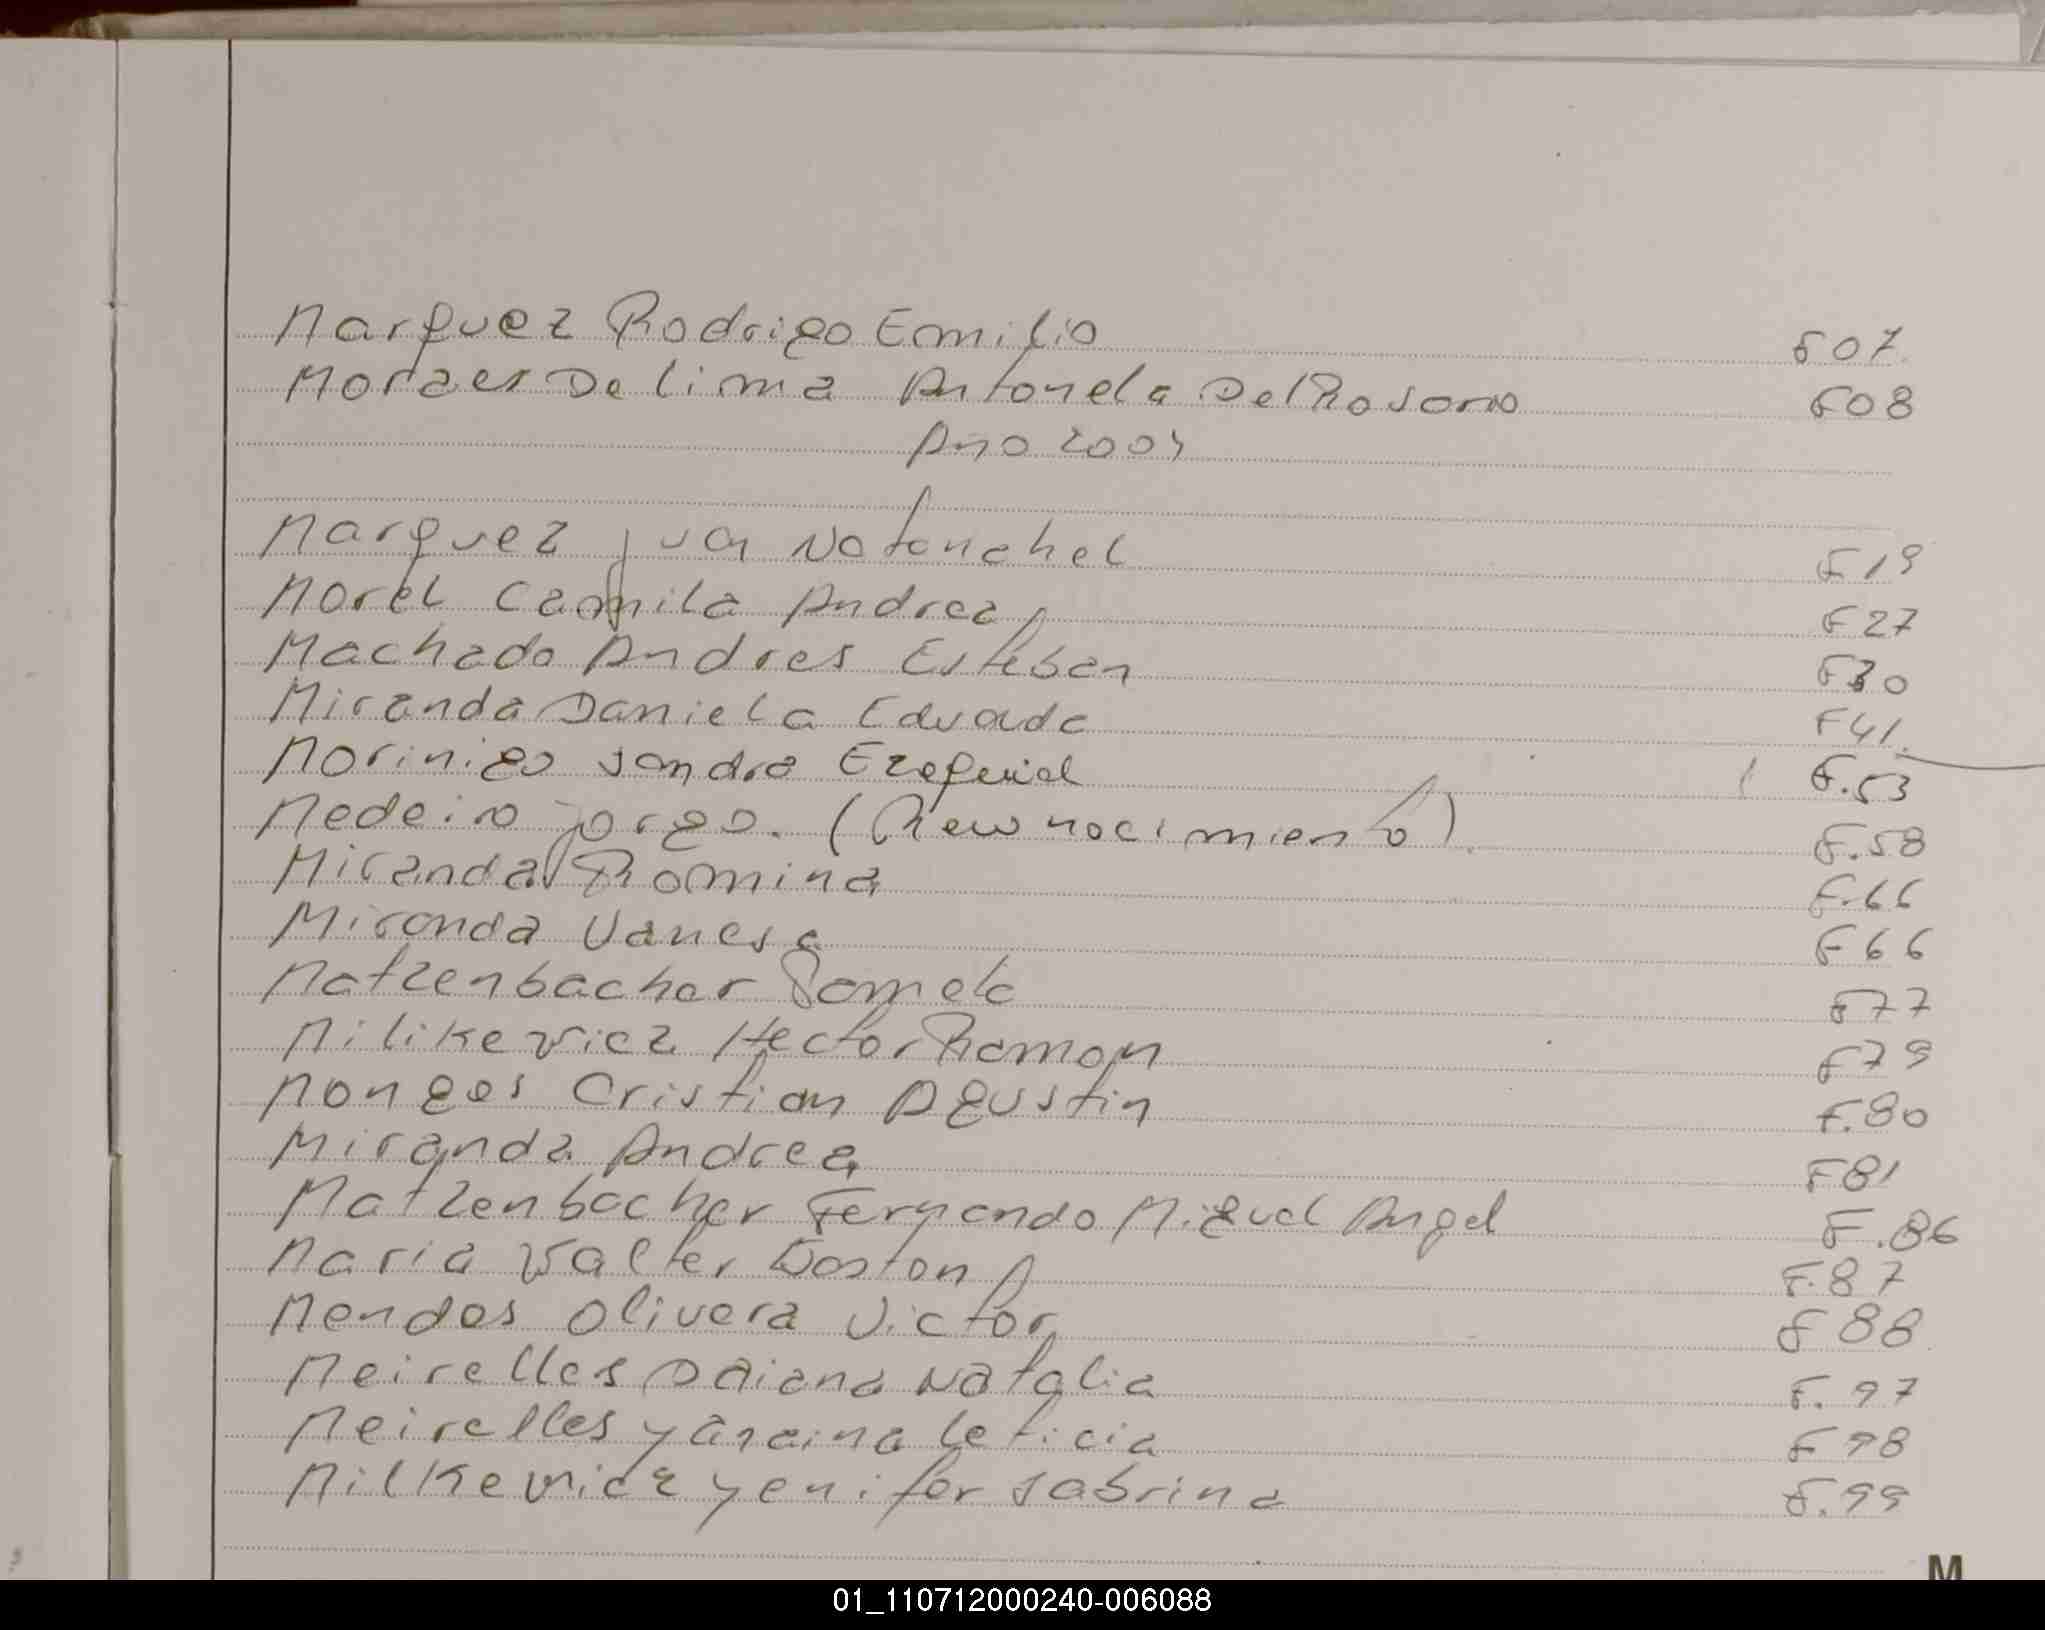 Marquez Rodrigo Emilio F07
Moraes De lima Antonela Del Rosario F08
Año 2004
Marquez Juan Natanahel F19
Morel Camila Andrea F27
Machado Andres Esteban F30
Miranda Daniela Eduada F41
Morinigo Sandro Ezequiel F.53
Medeiro Jorge. (Reconocimiento). F.58
Miranda Romina F.66
Miranda Vanesa F66
Matzenbacher Pamela F77
Milikevicz Hector Ramon F79
Monges Cristian Agustin F.80
Miranda Andrea F81
Matzenbacher Fernando Miguel Angel F.86
Maria Walter Gaston F.87
Mendes Olivera Victor F88
Meirelles Daiana Natalia F.97
Meirelles Yanaina Leticia F98
Milkevicz Yenifer Sabrina F.99
M
01_110712000240-006088